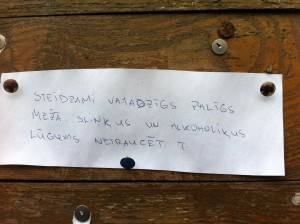 STEIDZAMI VAJADZĪGS PALĪGS
MEŽĀ. SLINĶUS UN ALKOHOLIĶUS
LŪGUMS NETRAUCĒT T